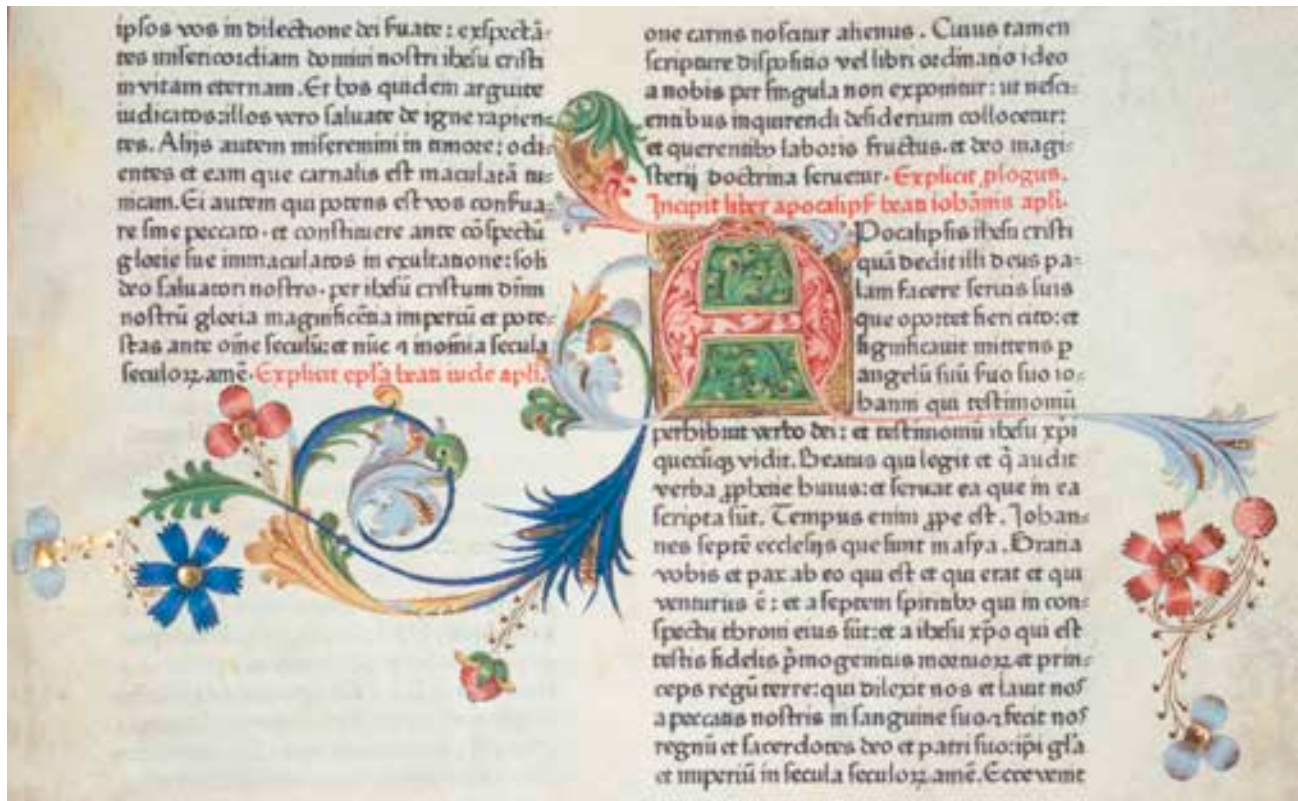 ipsos vos in dilectione dei suate : exspectā-
tes misericordiam domini nostri ihesu cristi
in vitam eternam. Et hos quidem arguite
iudicatos: illos vero saluate de igne rapien-
tes. Alijs autem miseremini in timore: odi-
entes et eam que carnalis est maculatā tu-
nicam. Ei autem qui potens est vos consua-
re sine peccato. et constituere ante cōspectū
glorie sue immaculatos in exultatione: soli
deo saluatori nostro. per ihesū cristum dn̄m
nostrū gloria magnificēcia imperiū et pote-
stas ante om̄e seculū: et nūc et in om̄ia secula
seculoꝝ. amē. Explicit ep̄la beati iude apl̄i.
one carnis noscitur alienus . Cuius tamen
scripture dispositio vel libri ordinatio ideo
a nobis per singula non exponitur: ut nesci-
entibus inquirendi desiderium collocetur:
et querentibꝰ laboris fructus. et deo magi-
sterij doctrina seruetur. Explicit ꝓlogus.
Incipit liber apocalipſ beati iohānis apl̄i.
APocalipsis ihesu cristi
quā dedit illi deus pa-
lam facere seruis suis
que oportet fieri cito: et
significauit mittens p
angelū suū suo suo io-
hanni qui testimoniū
perhibuit verbo dei : et testimoniū ihesu xp̄i
quecūqꝫ vidit. Beatus qui legit et q̄ audit
verba ꝓphetie huius: et seruat ea que in ea
scripta sūt. Tempus enim ꝓpe est. Johan-
nes septē ecclesijs que sunt in asya. Gratia
vobis et pax ab eo qui est et qui erat et qui
venturus ē : et a septem spiritibꝰ qui in con-
spectu throni eius sūt: et a ihesu xp̄o qui est
testis fidelis p̄mogenitus mortuoꝝ et prin-
ceps regū terre: qui dilexit nos et lauit nos
a peccatis nostris in sanguine suo et fecit nos
regnū et sacerdotes deo et patri suo: ip̄i gl̄a
et imperiū in secula seculoꝝ. amē. Ecce venit